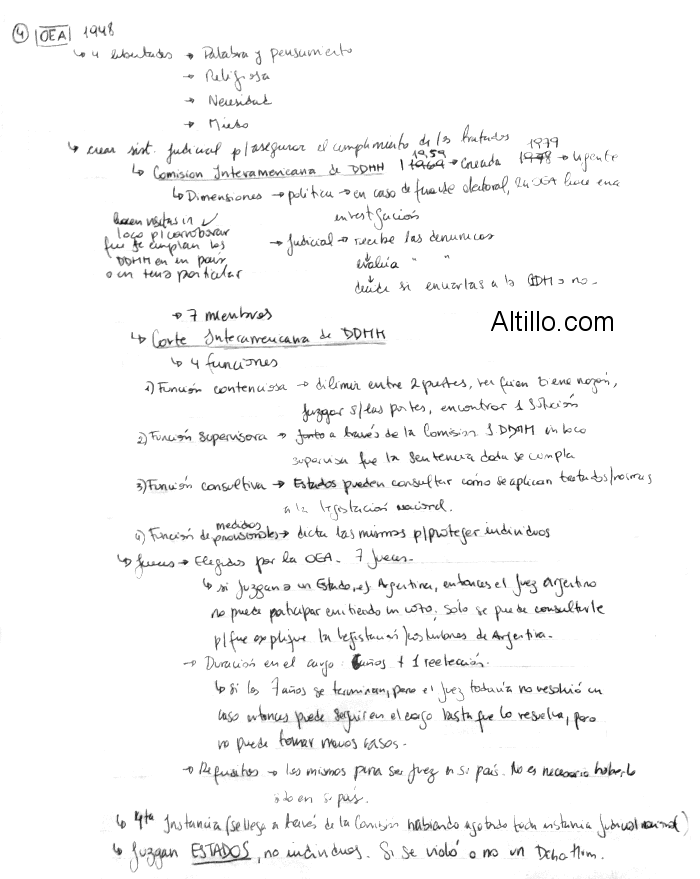 ④ OEA 1948
↳ 4 libertades → Palabra y pensamiento
→ Religiosa
→ Necesidad
→ Miedo
↳ crear sist. Judicial p/asegurar el cumplimiento de los tratados
↳ Comision Interamericana de DDHH 1959 → Creada 1979 → Vigente
↳ Dimensiones → política → en caso de fraude electoral, la OEA hace una
investigación
hacen visitas in
loco p/corroborar
que se cumplan los
DDHH en un país
o un tema particular
→ Judicial → recibe las denuncias
evalúa " "
decide si enviarlas a la CIDH o no.
→ 7 miembros
Altillo.com
↳ Corte Interamericana de DDHH
↳ 4 funciones
1) Función contenciosa → dilimir entre 2 partes, ver quien tiene razón,
juzgar s/las partes, encontrar 1 solución
2) Función supervisora → a través de la Comision I DDHH in loco
supervisa que la sentencia dada se cumpla
3) Función consultiva → Estados pueden consultar como se aplican tratados/normas
a la legislación nacional.
4) Función de medidas provisionales → dicta las mismas p/proteger individuos
↳ Jueces → Elegidos por la OEA. 7 jueces.
↳ si juzgan a un Estado, ej Argentina, entonces el juez argentino
no puede participar emitiendo un voto, solo se puede consultarle
p/que explique la legislación/costumbres de Argentina.
→ Duración en el cargo: 6 años + 1 reelección.
↳ si los 7 años se terminan, pero el juez todavía no resolvió un
caso entonces puede seguir en el cargo hasta que lo resuelva, pero
no puede tomar nuevos casos.
→ Requisitos → los mismos para ser juez en su país. No es necesario haberlo
sido en su país.
↳ 4ta Instancia (se llega a través de la Comisión habiendo agotado toda instancia judicial nacional)
↳ Juzgan ESTADOS, no individuos. Si se violó o no un Decho Hum.